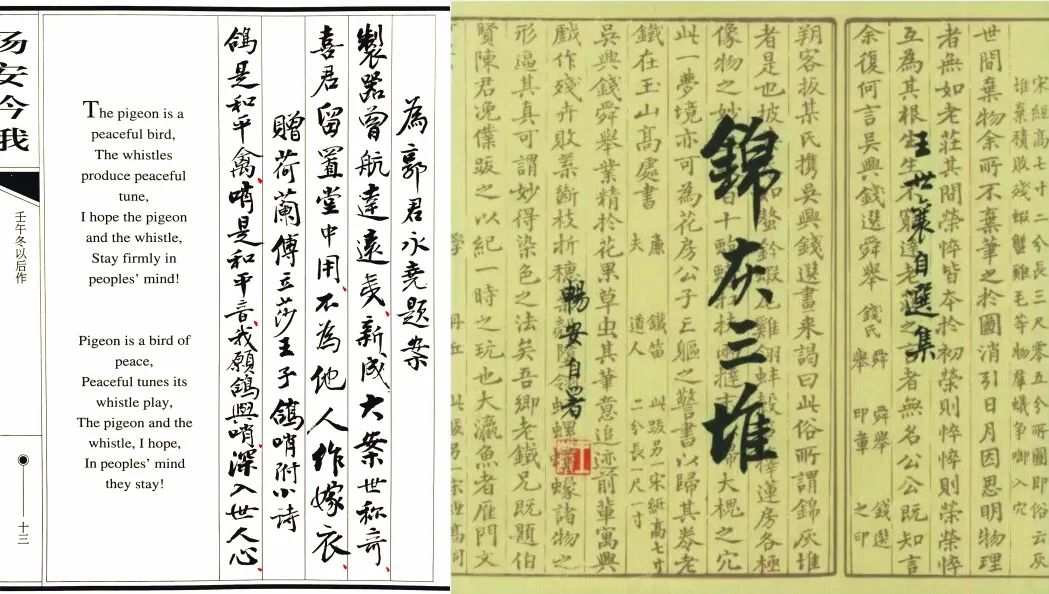 為郭君永堯題案
製器曾航達遠夷新成大案世称奇
喜君留置堂中用不為他人作嫁衣
贈荷蘭傅立莎王子鴿哨附小詩
鴿是和平禽哨是和平音我願鴿與哨深入世人心
The pigeon is a
peaceful bird,
The whistles
produce peaceful
tune,
I hope the pigeon
and the whistle,
Stay firmly in
peoples' mind!
Pigeon is a bird of
peace,
Peaceful tunes its
whistle play,
The pigeon and the
whistle, I hope,
In peoples' mind
they stay!
壬午冬以后作
十三
王世襄自選集
錦灰三堆
暢安自署
宋紙高七寸二分長三尺零五分所圖即俗云灰
堆棄積敗残蝦蟹雞毛等物羣蟻争啣入穴
世間棄物余所不棄筆之於圖消引日月因思明物理
者無如老荘其間榮悴皆本於初榮則悴悴則榮榮悴
互為其根生生不窮達老之言者無名公公既知言
余復何言吳興錢選舜舉 錢氏 舜舉 舜舉印章 錢選之印
朔客扳某氏携吳興錢選畫来謁曰此俗所謂錦灰堆
者是也披 螯鈐蝦 雞翎蚌殼 籜蓮房各極
像物之妙 大槐之穴
此一夢境亦可為花房公子亡軀之警書以歸其券老
鐵在玉山高處書 廉夫 鐵笛道人 此跋另一宋紙高七寸二分長一尺一寸
吳興錢舜舉業精於花果草虫其筆意追迹前輩寓興
戲作殘卉敗菜斷枝折穗 螺 蠓諸物之
形逼其真可謂妙得染色之法矣吾郷老鐵兄既題伯
賢陳君浼僕跋之以紀一時之玩也大瀛魚者雁門文